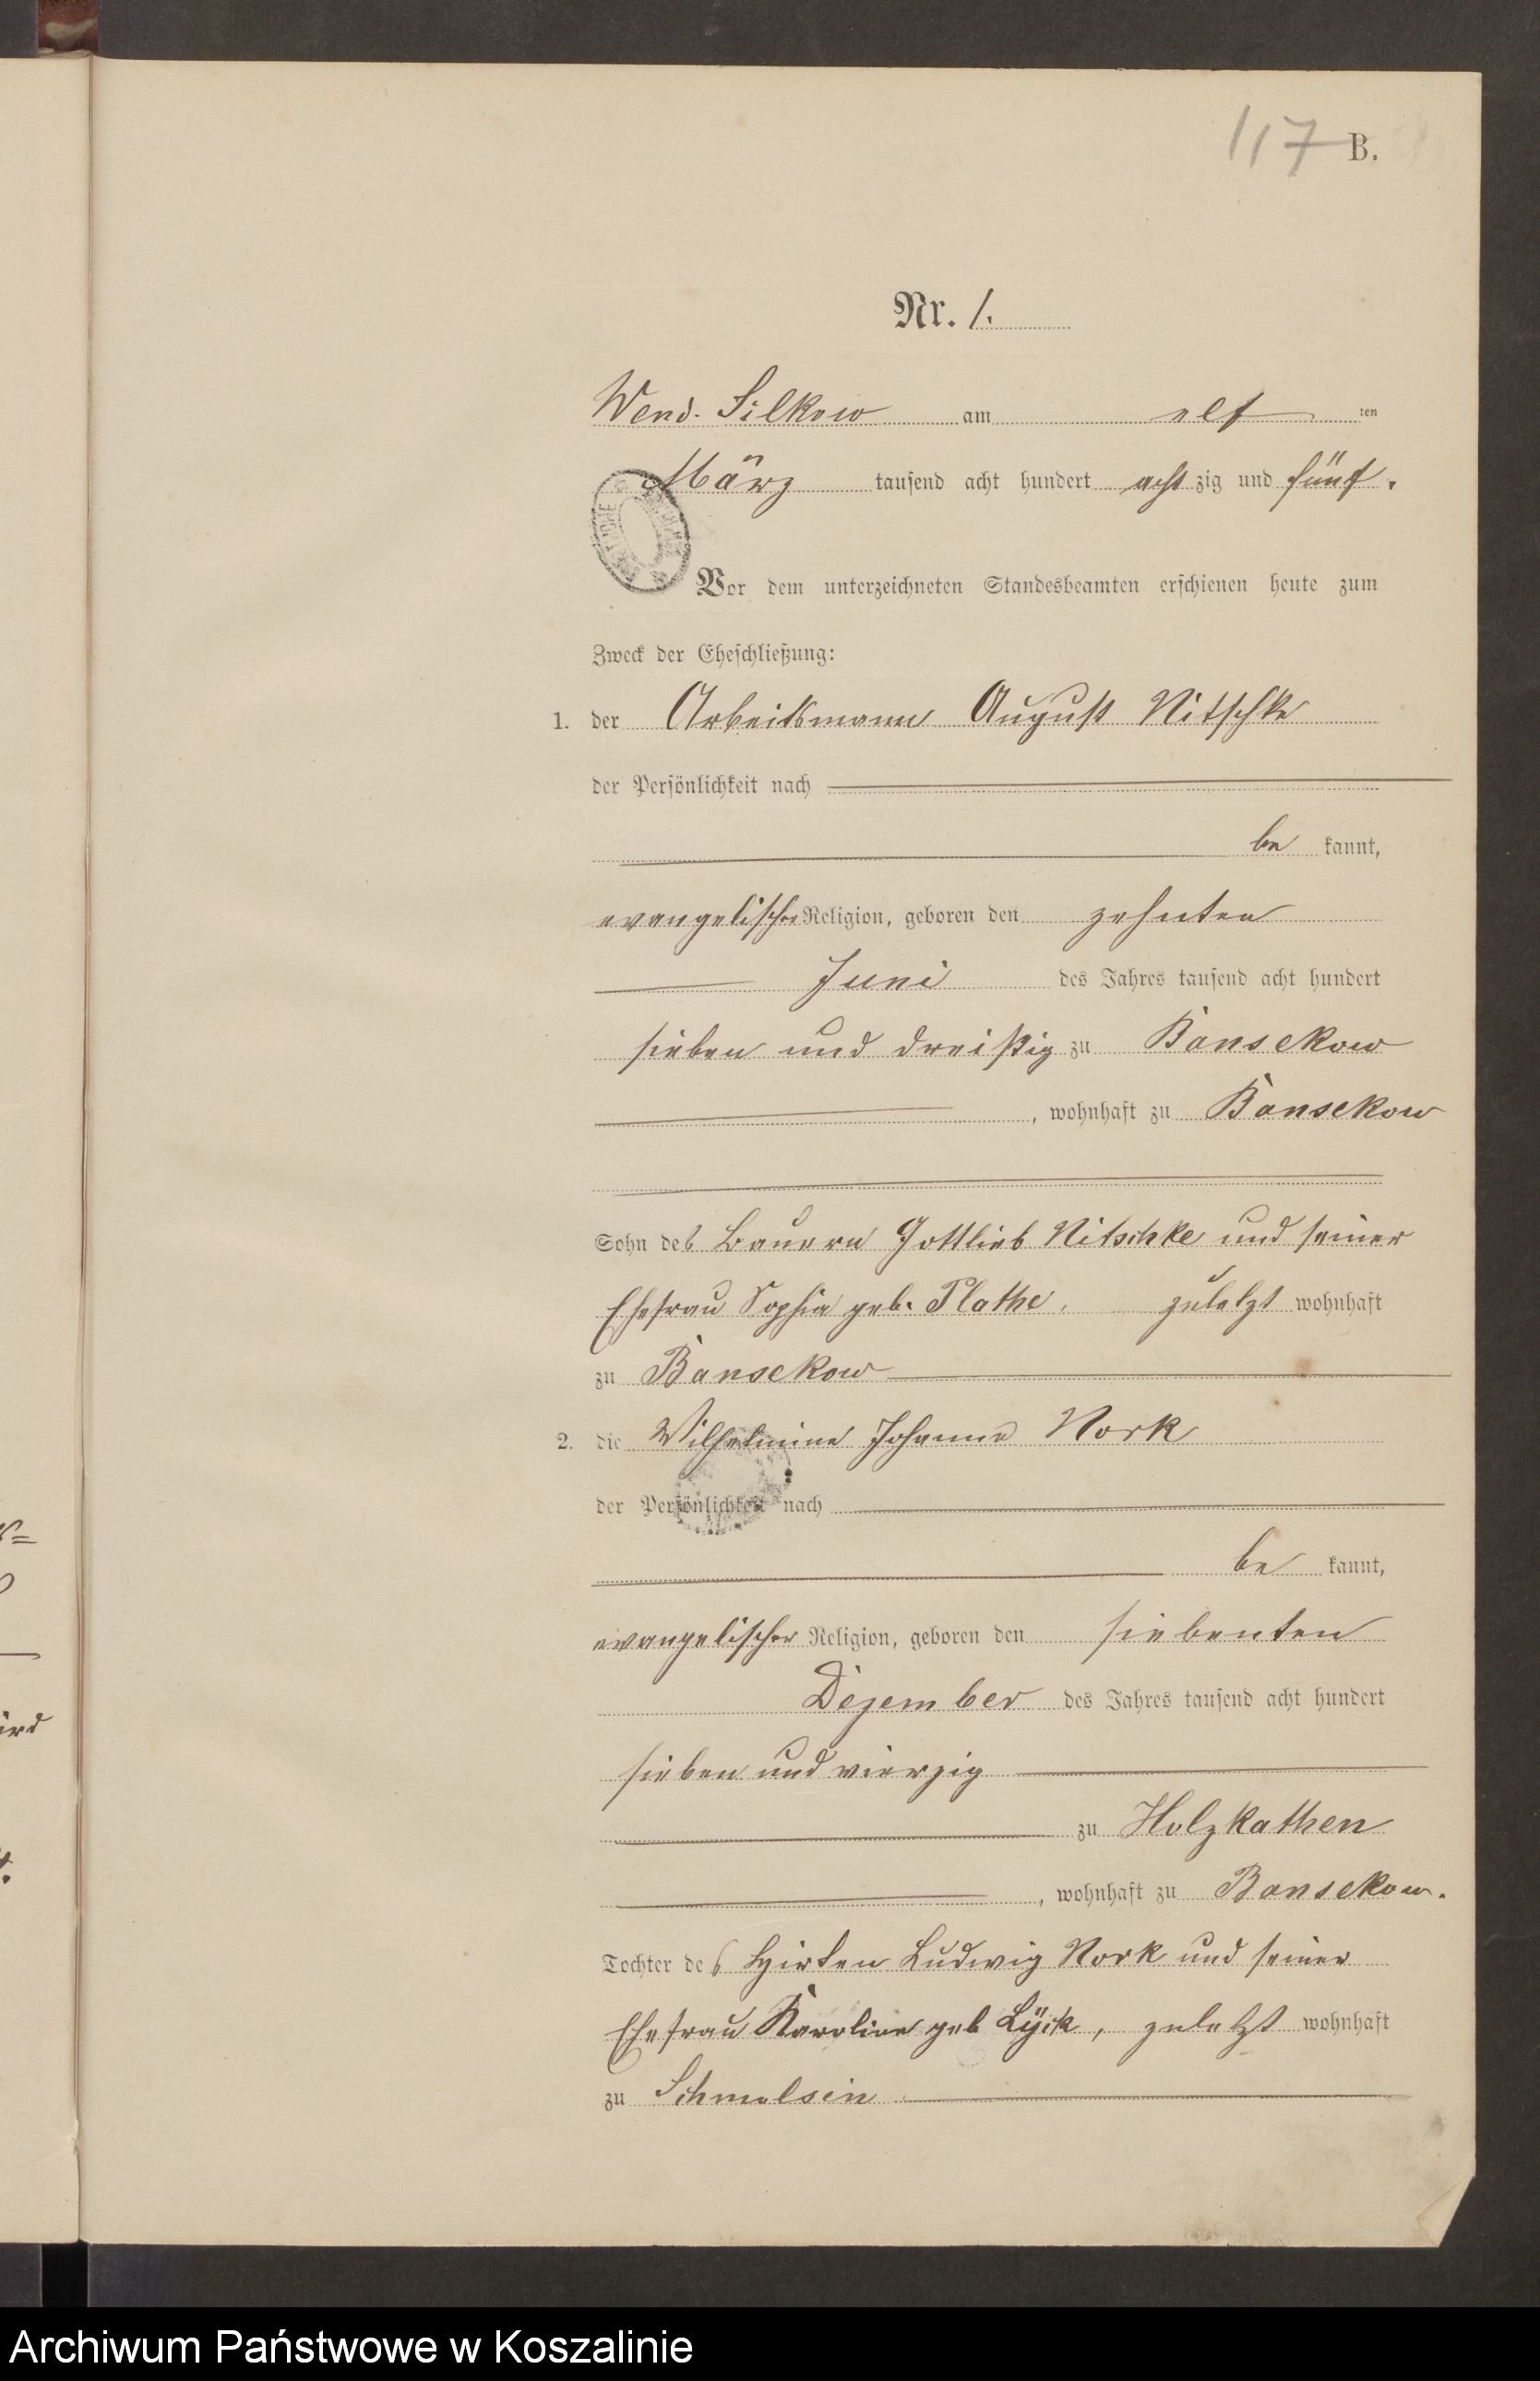 117 B.
Nr. 1.
Wend. Silkow am elf ten
März tausend acht hundert acht zig und fünf.
Vor dem unterzeichneten Standesbeamten erschienen heute zum
Zweck der Eheschließung:
1. der Arbeitsmann August Nitschke
der Persönlichkeit nach
be kannt,
evangelischer Religion, geboren den zehnten
Juni des Jahres tausend acht hundert
sieben und dreißig zu Bansekow
, wohnhaft zu Bansekow
Sohn des Bauern Gottlieb Nitschke und seiner
Ehefrau Sophia geb. Plathe, zuletzt wohnhaft
zu Bansekow
2. die Wilhelmine Johanne Nork
der Persönlichkeit nach
be kannt,
evangelischer Religion, geboren den siebenten
Dezember des Jahres tausend acht hundert
sieben und vierzig
zu Holzkathen
, wohnhaft zu Bansekow.
Tochter des Hirten Ludwig Nork und seiner
Ehefrau Karoline geb, zuletzt wohnhaft
zu Schmolsin
ird
Archiwum Państwowe w Koszalinie